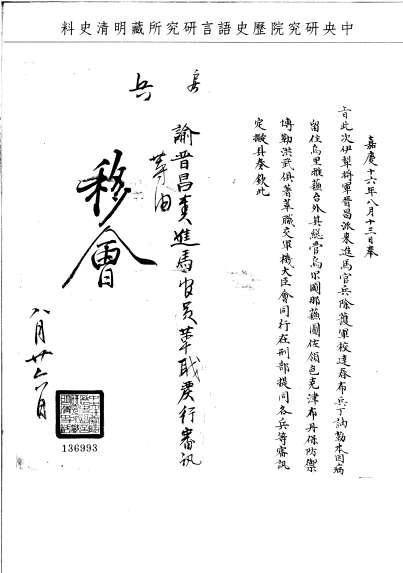 中央研究院歷史語言研究所藏明清史料
嘉慶十六年八月十三日奉
上諭此次伊犁將軍晉昌派來進馬官兵除護軍校達春布兵丁訥勒來因病
留住烏里雅蘇台外其總管烏爾圖那蘇圖佐領色克津布丹保防禦
博勒洪武俱著革職交軍機大臣會同行在刑部提同各兵等審訊
定擬具奏欽此
諭晉昌責進馬官員革職嚴行審訊
等由
兵
移會
八月廿六日
136993